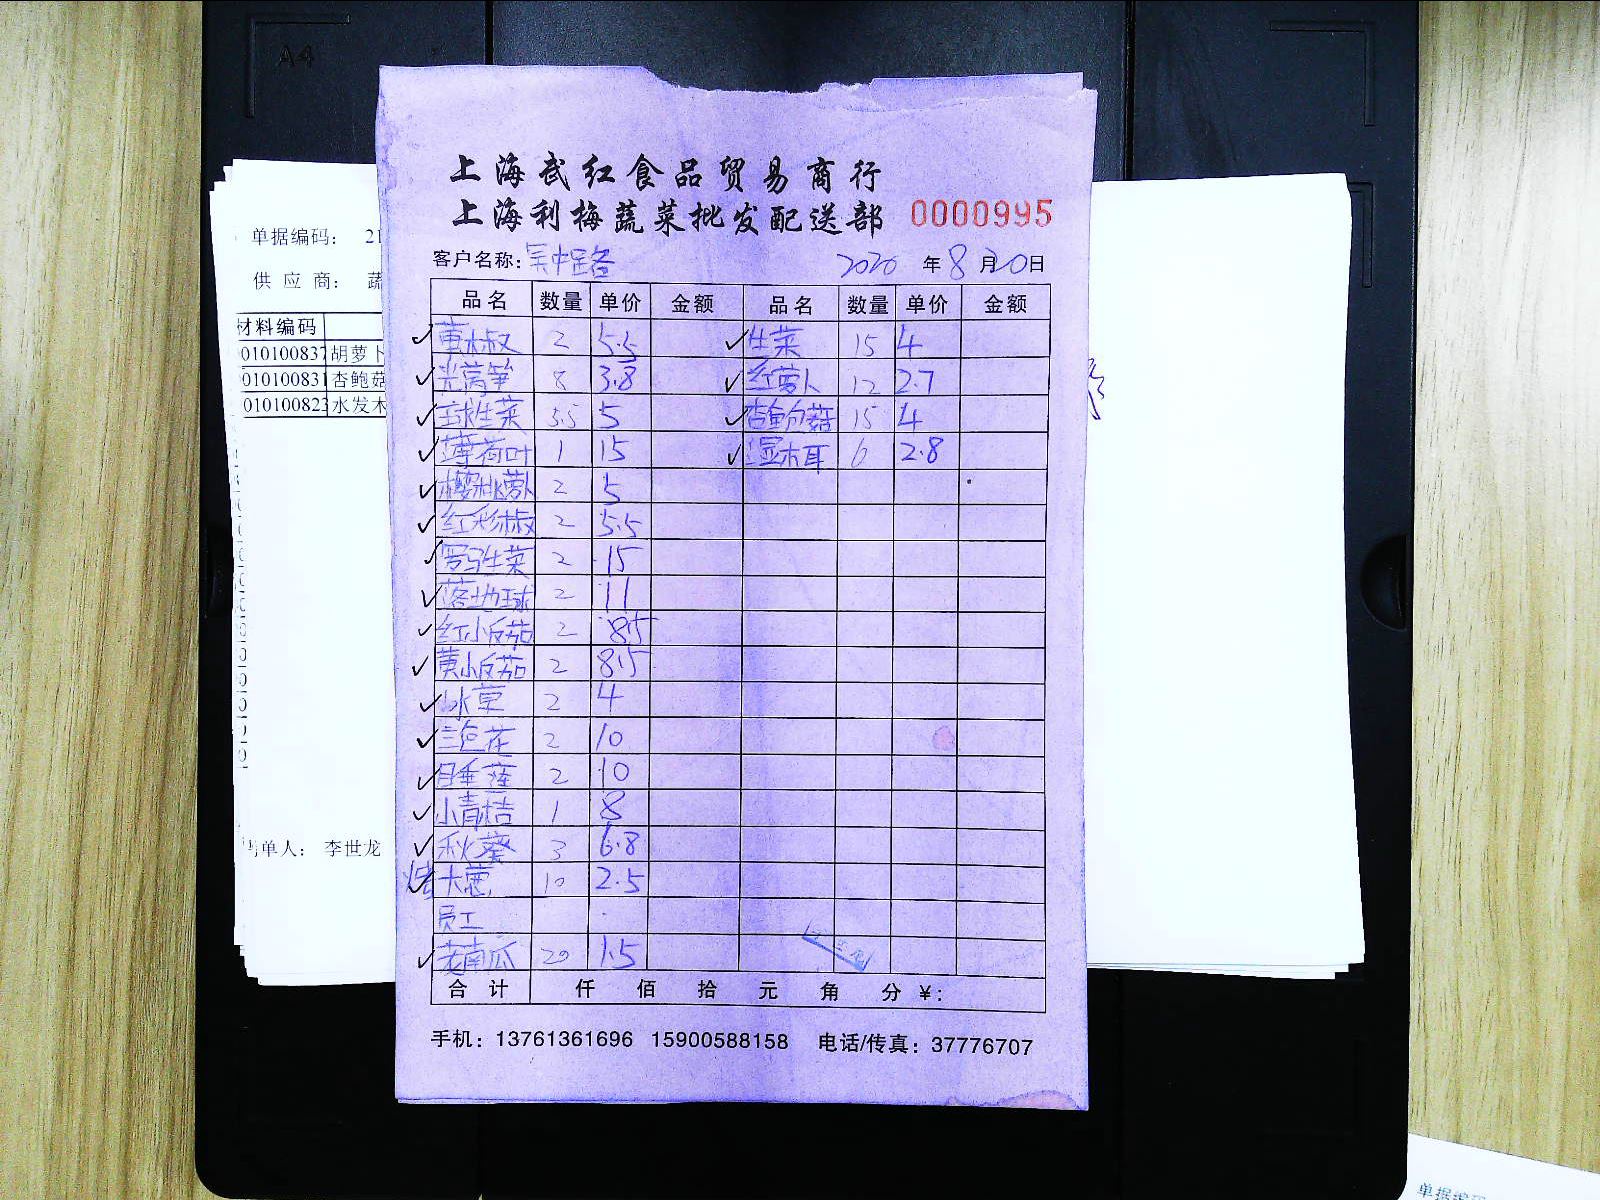 A4
上海武红食品贸易商行
上海利梅蔬菜批发配送部 0000995
客户名称：吴中路 2020 年 8 月 20 日
品名 数量 单价 金额 品名 数量 单价 金额
黄木椒 2 5.5 生菜 15 4
光莴笋 8 3.8 红萝卜 12 2.7
球生菜 3.5 5 杏鲍菇 15 4
薄荷叶 1 15 湿木耳 6 2.8
樱桃萝卜 2 5
红彩椒 2 5.5
罗马生菜 2 15
落地球 2 11
红小反茄 2 8.5
黄小反茄 2 8.5
冰草 2 4
三色花 2 10
2 10
小青桔 1 8
秋葵 3 6.8
大葱 10 2.5
员工
老南瓜 20 1.5
合计 仟 佰 拾 元 角 分 ¥:
手机：13761361696 15900588158 电话/传真：37776707
单据编码： 21
供应商： 蔬
材料编码
010100837 胡萝卜
010100831 杏鲍菇
010100823 水发木
单人： 李世龙
单据编码